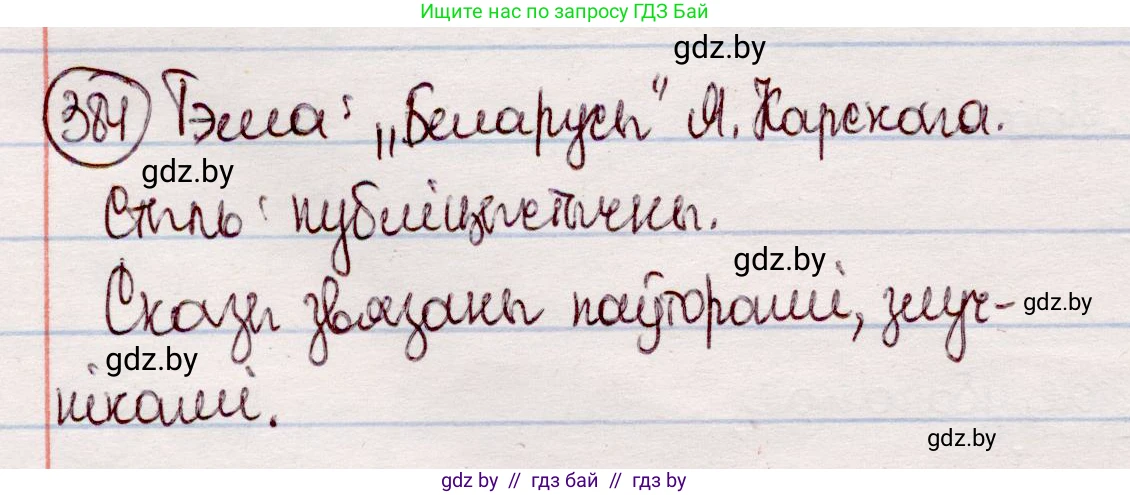 Ищите нас по запросу ГДЗ Бай
gdz.by
384 Тэма: „Беларусы" Я. Карскага.
gdz.by
Стыль: публіцыстычны.
gdz.by
Сказы звязаны паўторамі, злуч-
gdz.by
gdz.by
нікамі.
gdz.by
gdz by // гдз бай // гдз by